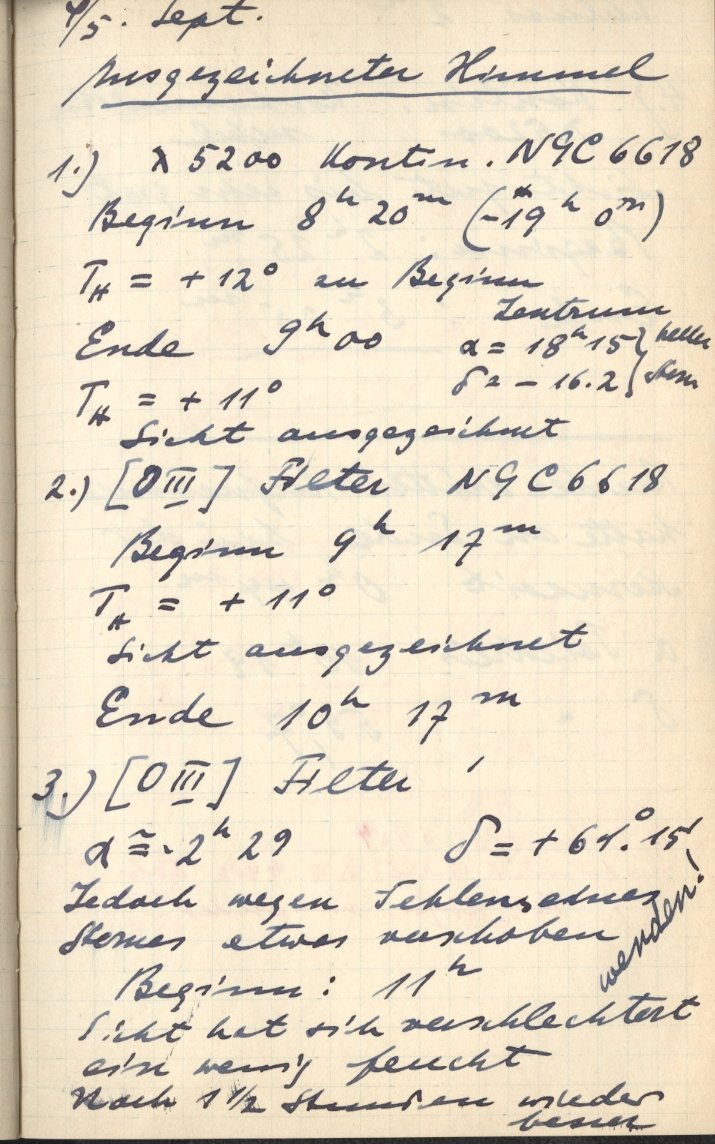 4/5. Sept.
Ausgezeichneter Himmel
1.) λ 5200 Kontin. NGC 6618
Beginn 8ʰ 20ᵐ (-19ʰ 0ᵐ)
T_H = + 12° zu Beginn
Zentrum
Ende 9ʰ 00 α = 18ʰ 15 } heller
T_H = + 11° δ = - 16.2 } Stern
Sicht ausgezeichnet
2.) [O III] Filter NGC 6618
Beginn 9ʰ 17ᵐ
T_H = + 11°
Sicht ausgezeichnet
Ende 10ʰ 17ᵐ
3.) [O III] Filter
α ≅ 2ʰ 29 δ = + 61°. 15'
Jedoch wegen Fehlens eines
Sternes etwas verschoben
wenden!
Beginn: 11ʰ
Sicht hat sich verschlechtert
ein wenig feucht
Nach 1 1/2 Stunden wieder
besser